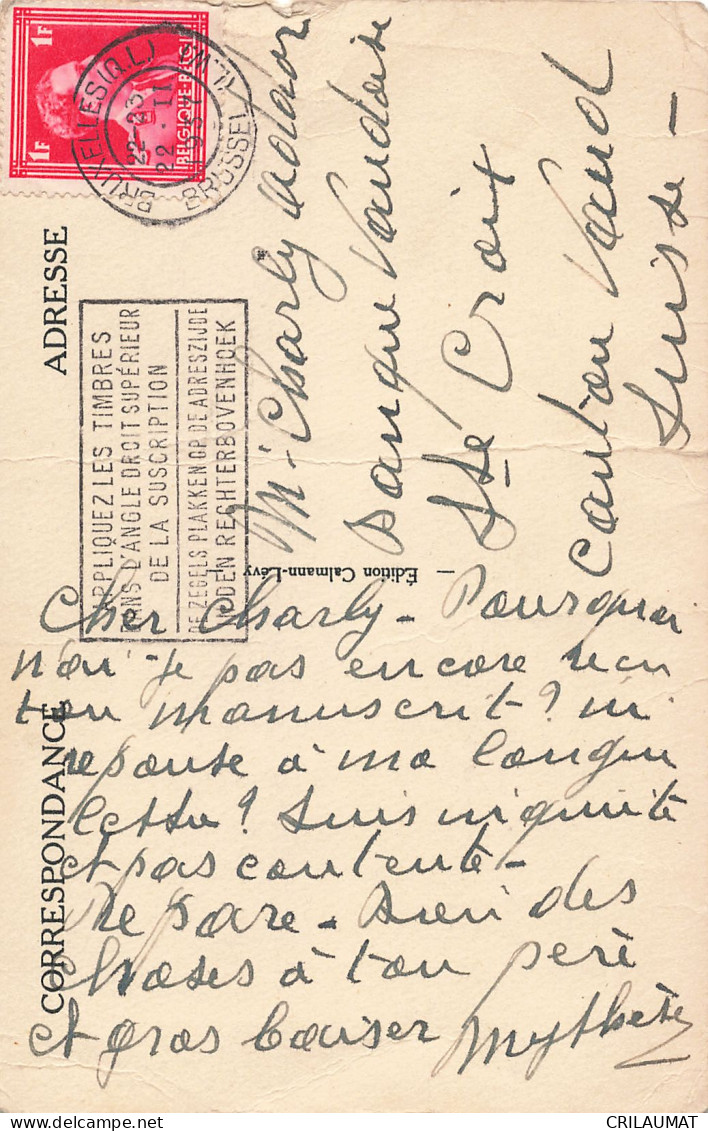 1F
1F
BELGIQUE-BELGIË
BRUXELLES (Q.L.)
22-23
22 · II
1951
BRUSSEL (L.W.)
ADRESSE
APPLIQUEZ LES TIMBRES
DANS L'ANGLE DROIT SUPÉRIEUR
DE LA SUSCRIPTION
DE ZEGELS PLAKKEN OP DE ADRESZIJDE
IN DEN RECHTERBOVENHOEK
Mr Charly
Banque Vaudoise
Ste Croix
Canton Vaud
Suisse —
— Édition Calmann-Lévy —
CORRESPONDANCE
Cher Charly – Pourquoi
n'ai-je pas encore reçu
ton manuscrit? ni
reponse à ma longue
lettre? Suis inquiète
et pas contente –
Repare – Bien des
choses à ton père
et gros baiser
CRILAUMAT